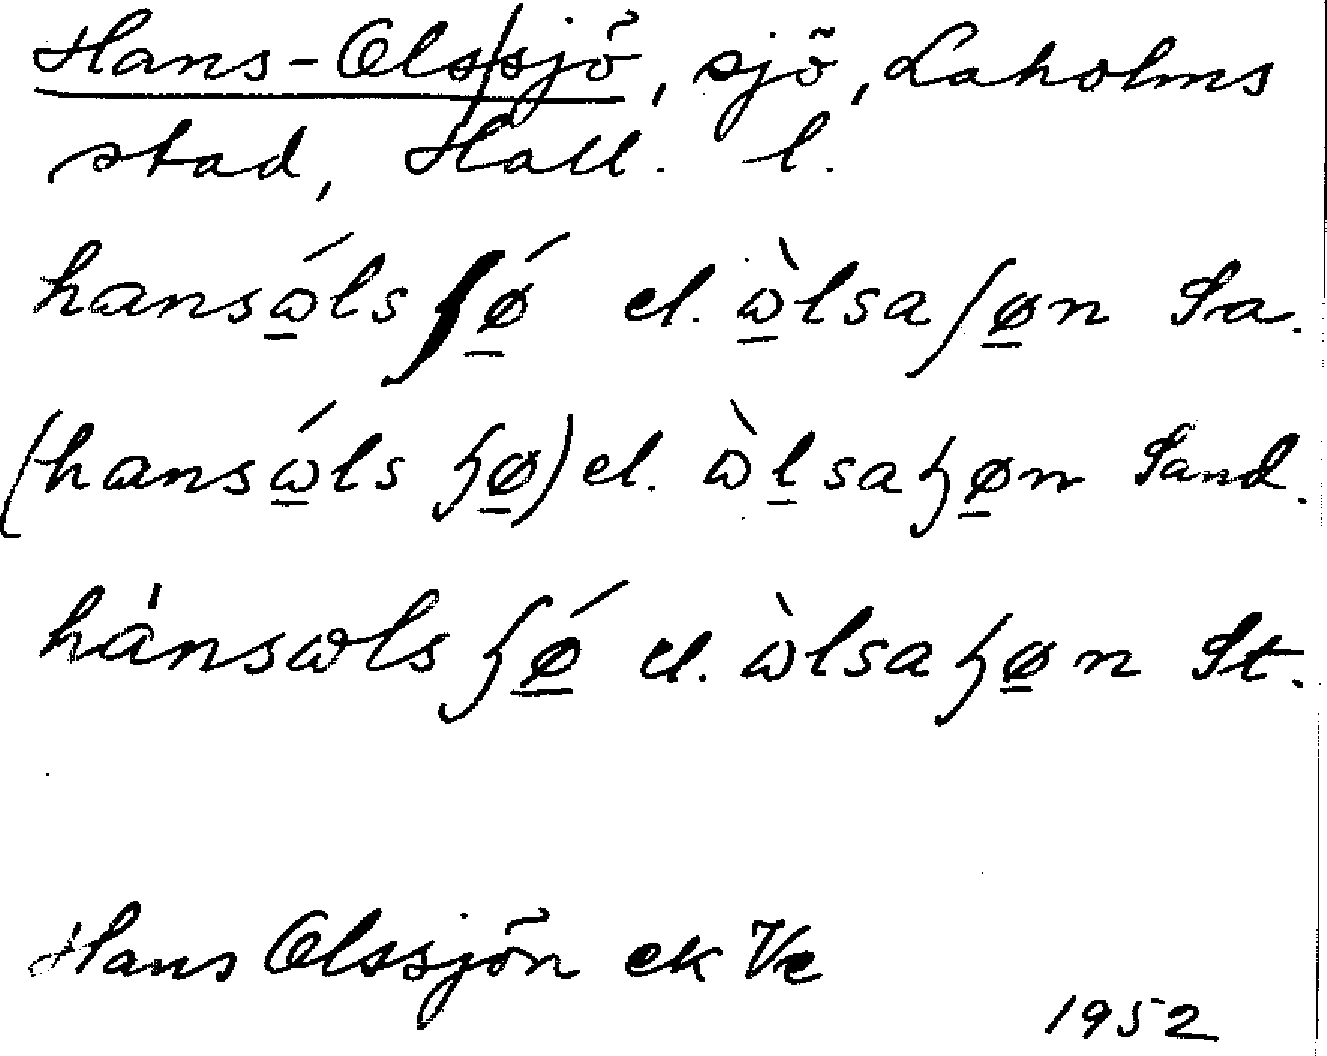 Hans-Ols/sjö, sjö, Laholms
stad, Hall. l.
hansώ̲ls ʃǿ̲ el. ὼ̲lsaʃø̲n Sa.
(hansώ̲ls ɧø̲) el. ὼl̲saɧø̲n Sand.
hànsωls ɧǿ̲ el. ὼlsaɧø̲n St.
Hans Olssjön ek Ve
1952